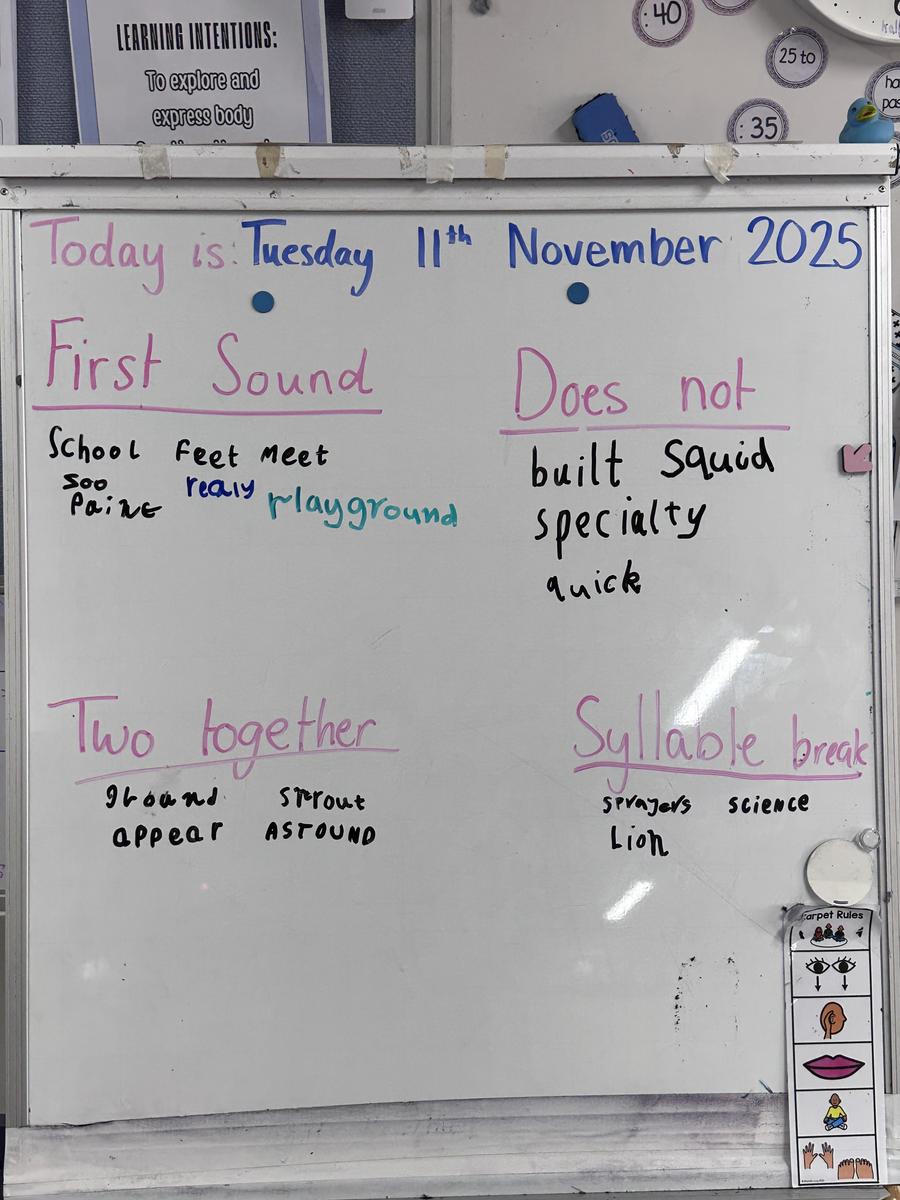 LEARNING INTENTIONS:
To explore and
express body
:40
25 to
:35
Today is: Tuesday 11th November 2025
First Sound
School Feet Meet
soo realy
Paint playground
Does not
built Squid
specialty
quick
Two together
ground sprout
appear ASTOUND
Syllable break
sprayers science
Lion
Carpet Rules